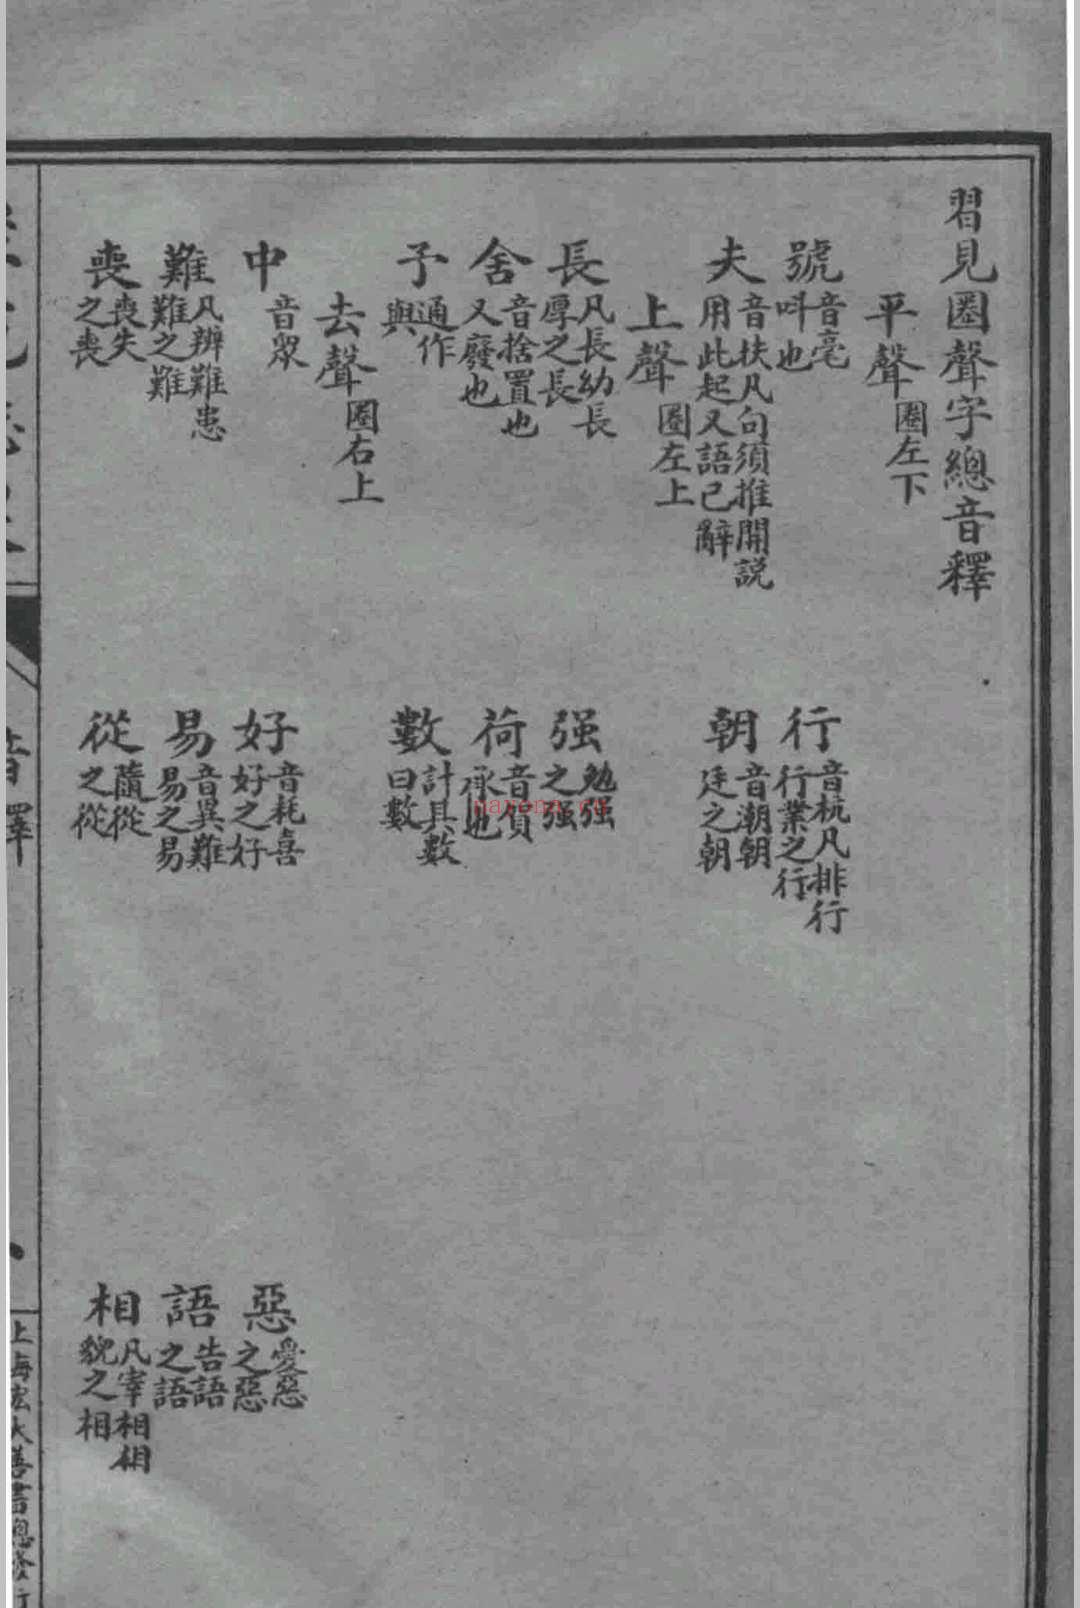 習見圈聲字總音釋
平聲 圈左下
號 音毫 呌也
行 音杭凡排行 行業之行
夫 音扶凡句須推開説 用此起又語已辭
朝 音潮朝 廷之朝
上聲 圈左上
長 凡長幼長 厚之長
强 勉强 之强
舍 音捨置也 又廢也
荷 音賀 承也
予 通作 與
數 計其數 曰數
去聲 圈右上
中 音眾
好 音耗喜 好之好
惡 愛惡 之惡
難 凡辨難患 難之難
易 音異難 易之易
語 告語 之語
喪 喪失 之喪
從 隨從 之從
相 凡宰相相 貌之相
音釋
上海宏大善書總發行